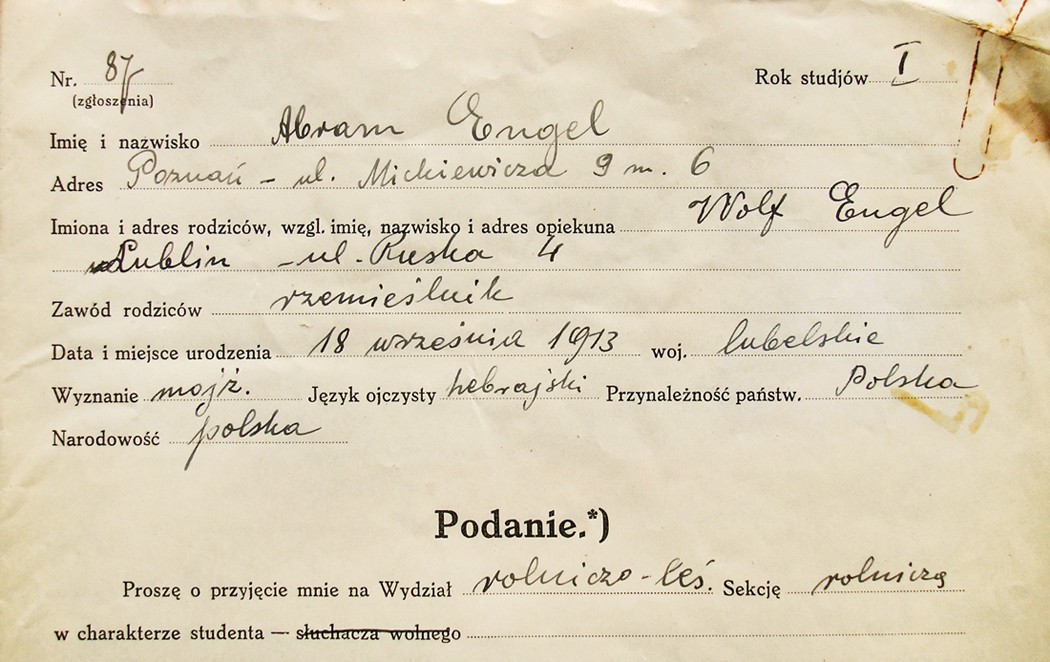 Nr. 87 Rok studjów I
(zgłoszenia)
Imię i nazwisko Abram Engel
Adres Poznań - ul. Mickiewicza 9 m. 6
Imiona i adres rodziców, wzgl. imię, nazwisko i adres opiekuna Wolf Engel
Lublin - ul. Ruska 4
Zawód rodziców rzemieślnik
Data i miejsce urodzenia 18 września 1913 woj. lubelskie
Wyznanie mojż. Język ojczysty hebrajski Przynależność państw. Polska
Narodowość polska
Podanie.*)
Proszę o przyjęcie mnie na Wydział rolniczo-leś. Sekcję rolniczą
w charakterze studenta — słuchacza wolnego